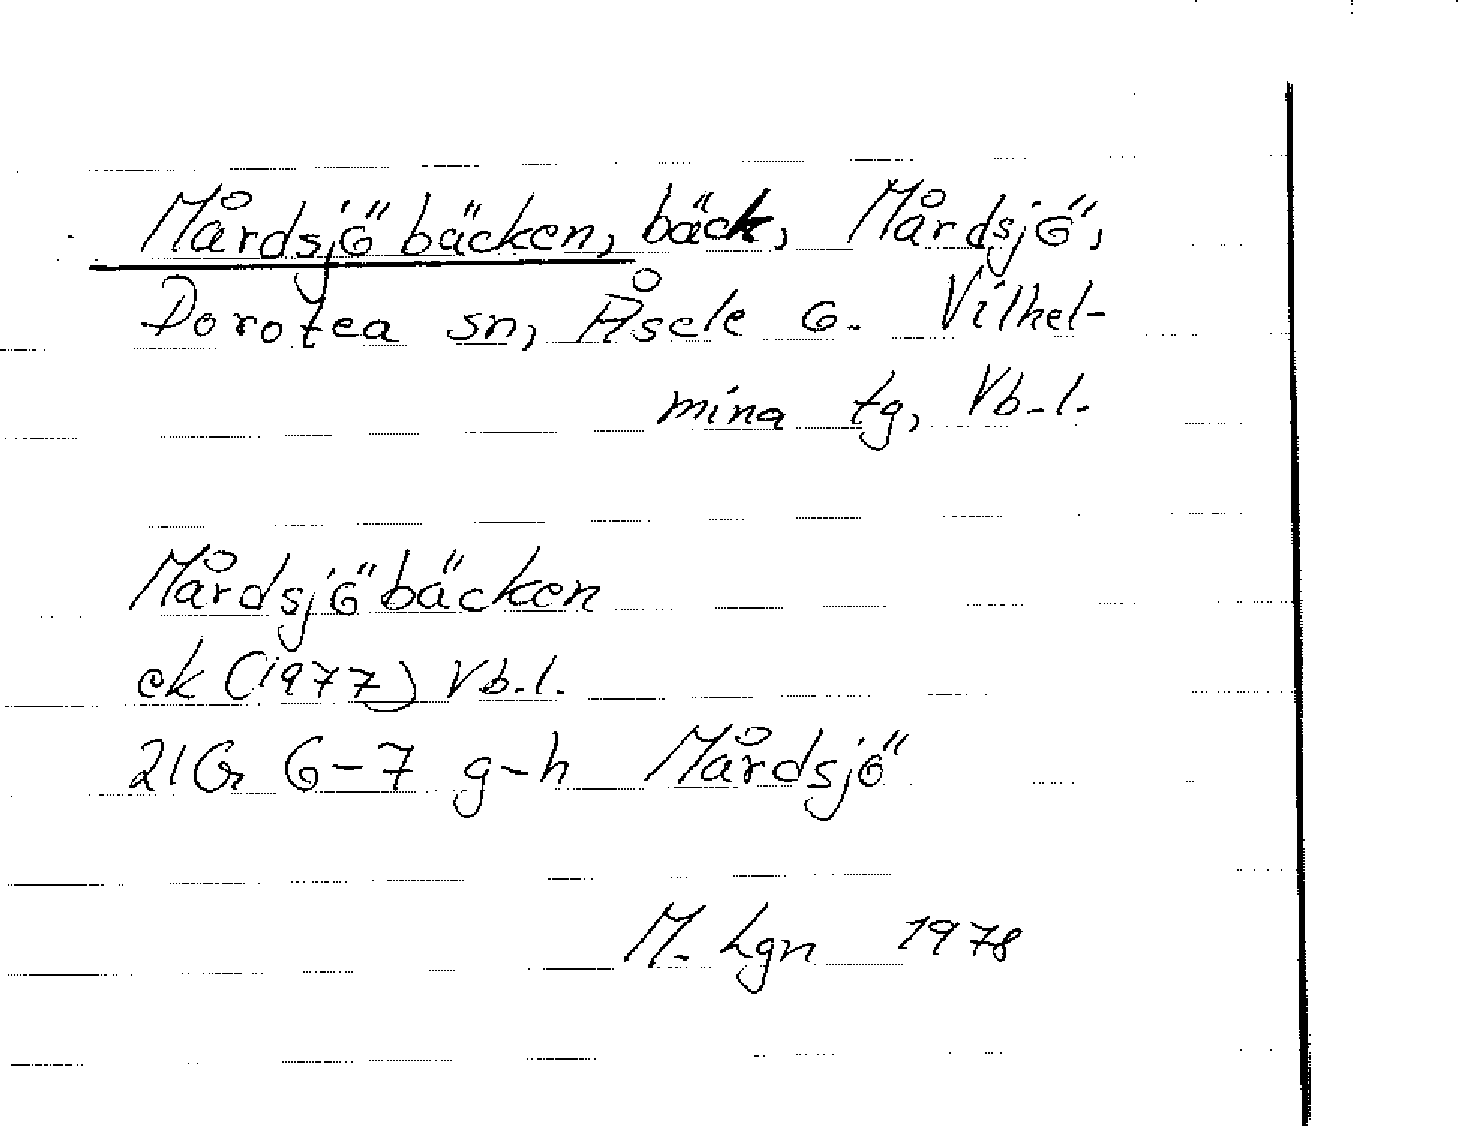 Mårdsjöbäcken, bäck, Mårdsjö,
Dorotea sn, Åsele G. Vilhel-
mina tg, Vb.l.
Mårdsjöbäcken
ek (1977) Vb.l.
21G 6-7 g-h Mårdsjö
M. Lgn 1978